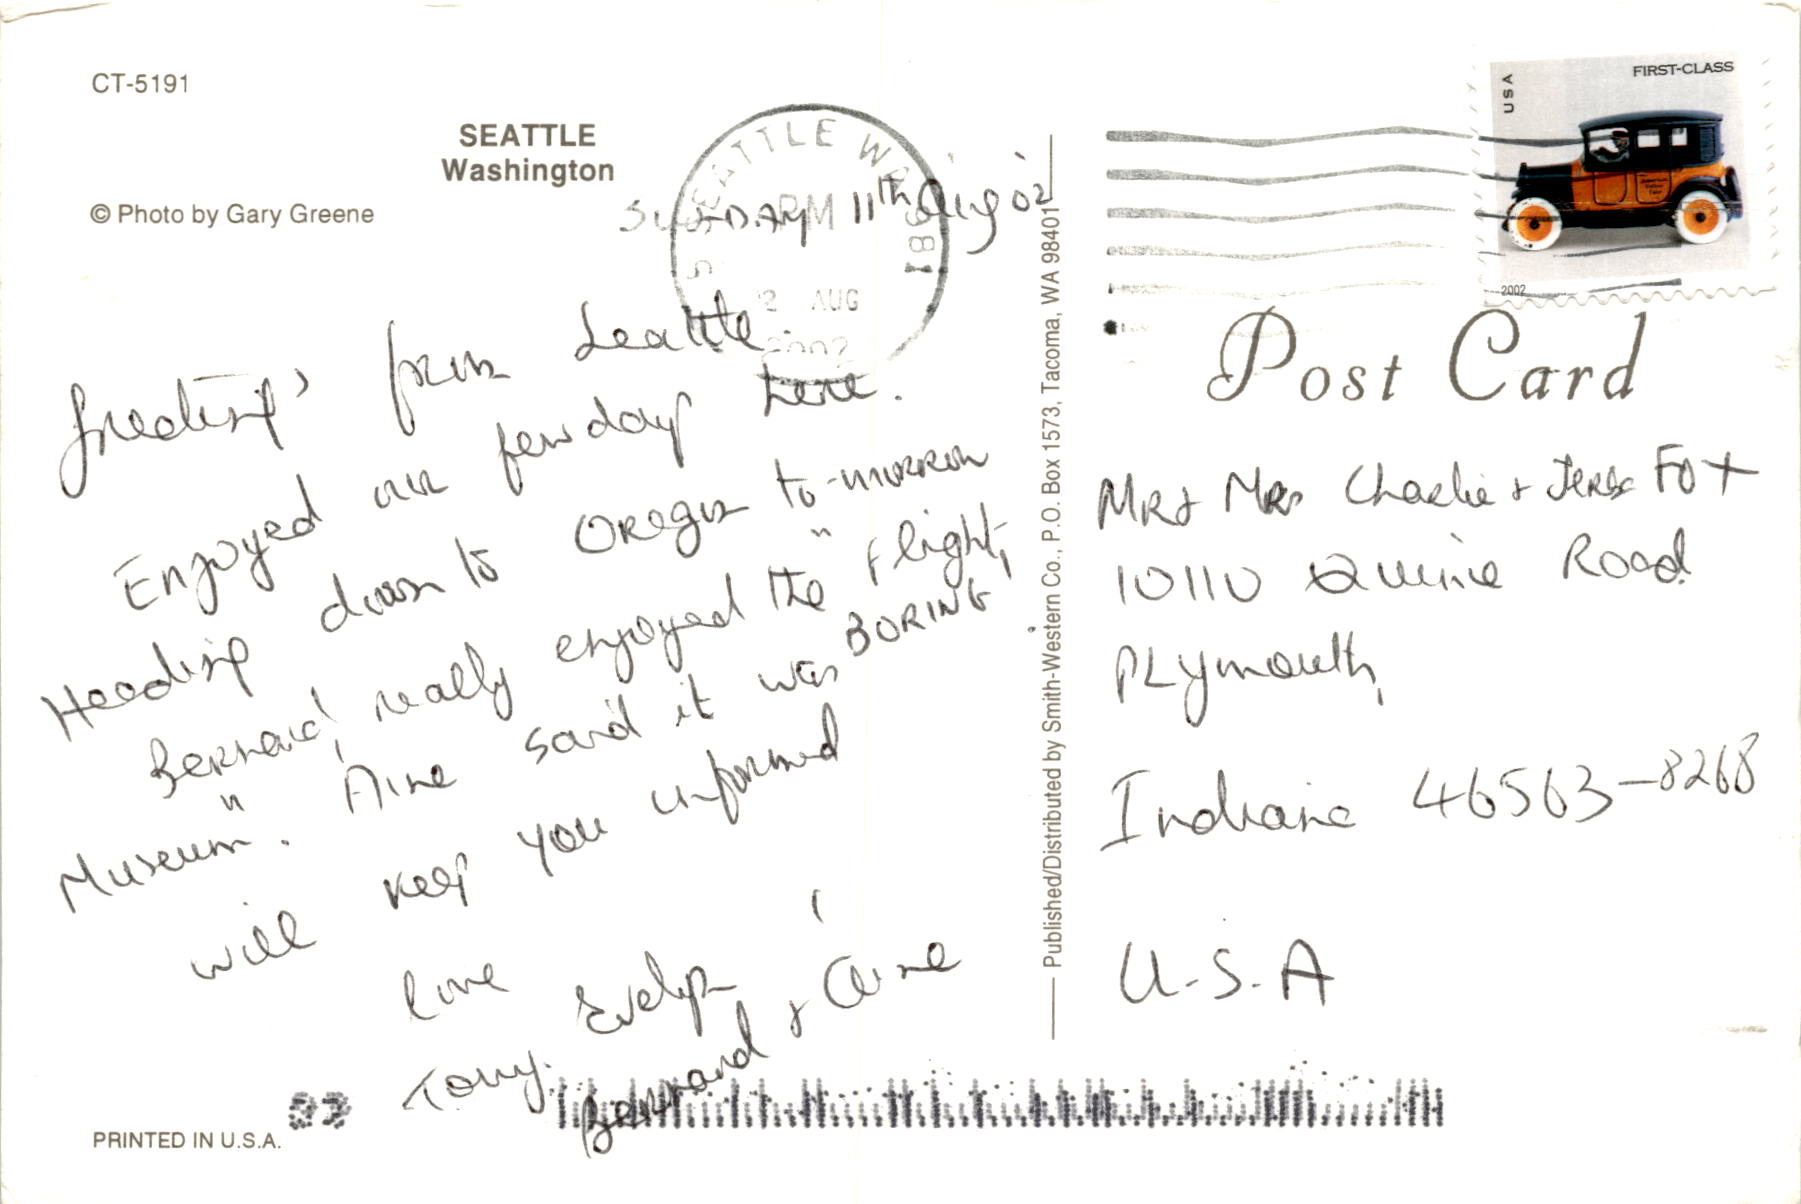 CT-5191
SEATTLE
Washington
© Photo by Gary Greene
SEATTLE WA 981
PM
2 AUG
2002
SUNDAY 11th Aug 02
Greetings from Seattle.
Enjoyed our few days here.
Heading down to Oregon to-morrow
Bernard really enjoyed the "Flight
Museum". Aine said it was BORING
will keep you informed
love Evelyn
Tony. Bernard & Aine
PRINTED IN U.S.A.
Published/Distributed by Smith-Western Co., P.O. Box 1573, Tacoma, WA 98401
USA
FIRST-CLASS
2002
Post Card
MR & MRS Charlie & Fox
10110 Quince Road
Plymouth,
Indiana 46563-8268
U.S.A